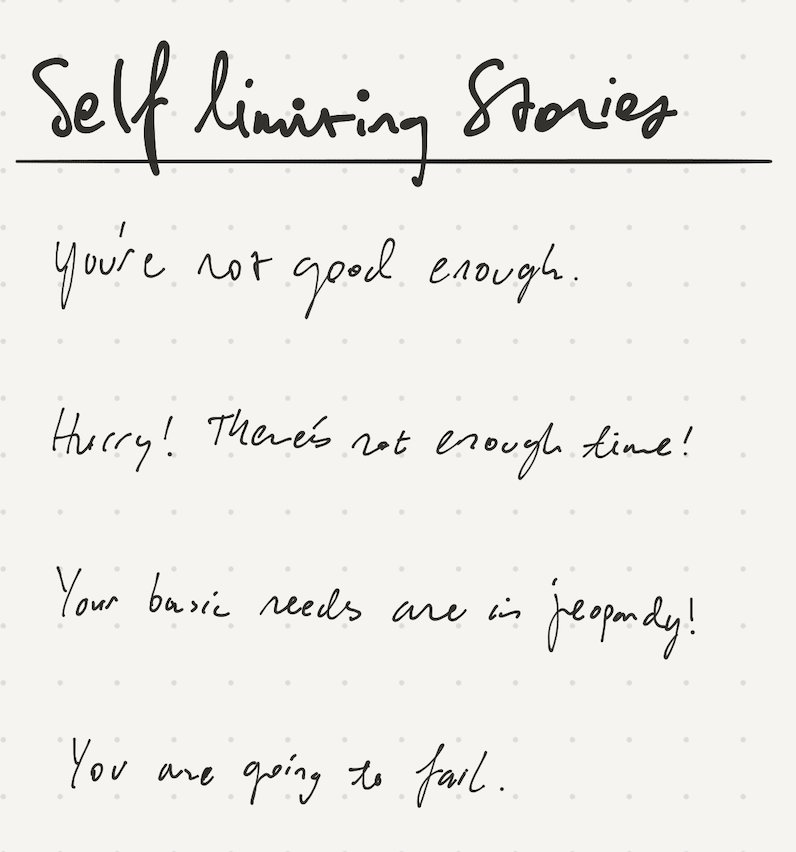 Self limiting Stories
You're not good enough.
Hurry! There's not enough time!
Your basic needs are in jeopardy!
You are going to fail.